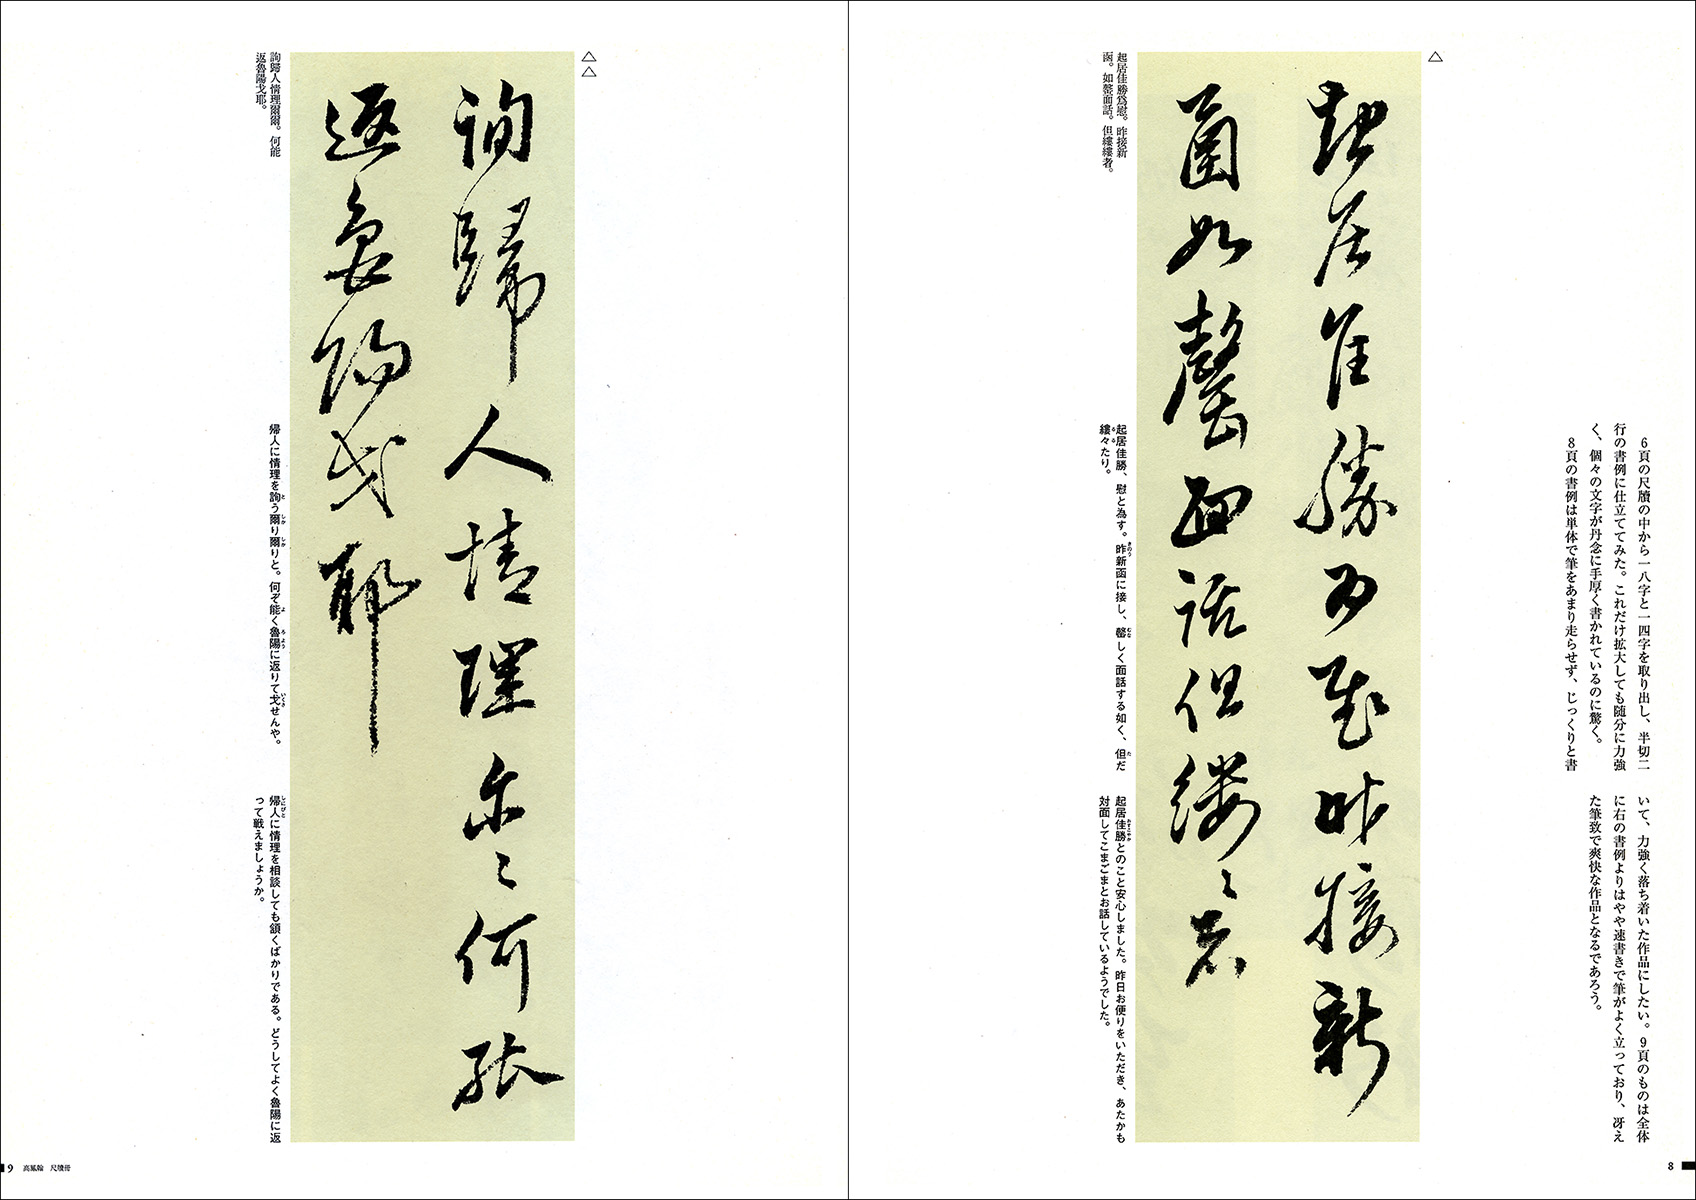 6頁の尺牘の中から一八字と一四字を取り出し、半切二
行の書例に仕立ててみた。これだけ拡大しても随分に力強
く、個々の文字が丹念に手厚く書かれているのに驚く。
8頁の書例は単体で筆をあまり走らせず、じっくりと書
いて、力強く落ち着いた作品にしたい。9頁のものは全体
に右の書例よりはやや速書きで筆がよく立っており、冴え
た筆致で爽快な作品となるであろう。
△
起居佳勝為慰昨接新
函如罄面話但縷〻者
起居佳勝爲慰。昨接新
函。如罄面話。但縷縷者。
起居佳勝、慰と為す。昨新函に接し、罄しく面話する如く、但だ
縷々たり。
起居佳勝とのこと安心しました。昨日お便りをいただき、あたかも
対面してこまごまとお話しているようでした。
8
△△
詢歸人情理尓〻何能
返魯陽戈耶
詢歸人情理爾爾。何能
返魯陽戈耶。
帰人に情理を詢う爾り爾りと。何ぞ能く魯陽に返りて戈せんや。
帰人に情理を相談しても頷くばかりである。どうしてよく魯陽に返
って戦えましょうか。
9 高鳳翰 尺牘冊